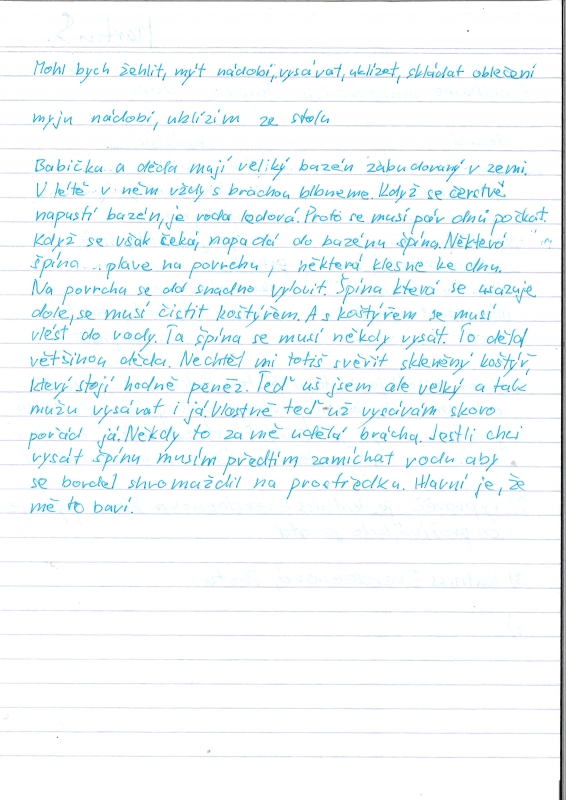 Mohl bych žehlit, mýt nádobí, vysávat, uklízet, skládat oblečení
myju nádobí, uklízím ze stolu
Babička a děda mají veliký bazén zabudovaný v zemi.
V létě v něm vždy s bráchou blbneme. Když se čerstvě
napustí bazén, je voda ledová. Proto se musí pár dnů počkat.
Když se však čeká, napadá do bazénu špína. Některá
špína plave na povrchu, některá klesne ke dnu.
Na povrchu se dá snadno vylovit. Špína která se usazuje
dole, se musí čistit koštýřem. A s koštýřem se musí
vlést do vody. Ta špína se musí někdy vysát. To dělá
většinou děda. Nechtěl mi totiš svěřit skleněný koštýř
který stojí hodně peněz. Teď uš jsem ale velký a tak
mužu vysávat i já. Vlastně teď už vysávám skoro
pořád já. Někdy to za mě udělá brácha. Jestli chci
vysát špínu musím předtím zamíchat vodu aby
se bordel shromaždil na prostředku. Hlavní je, že
mě to baví.